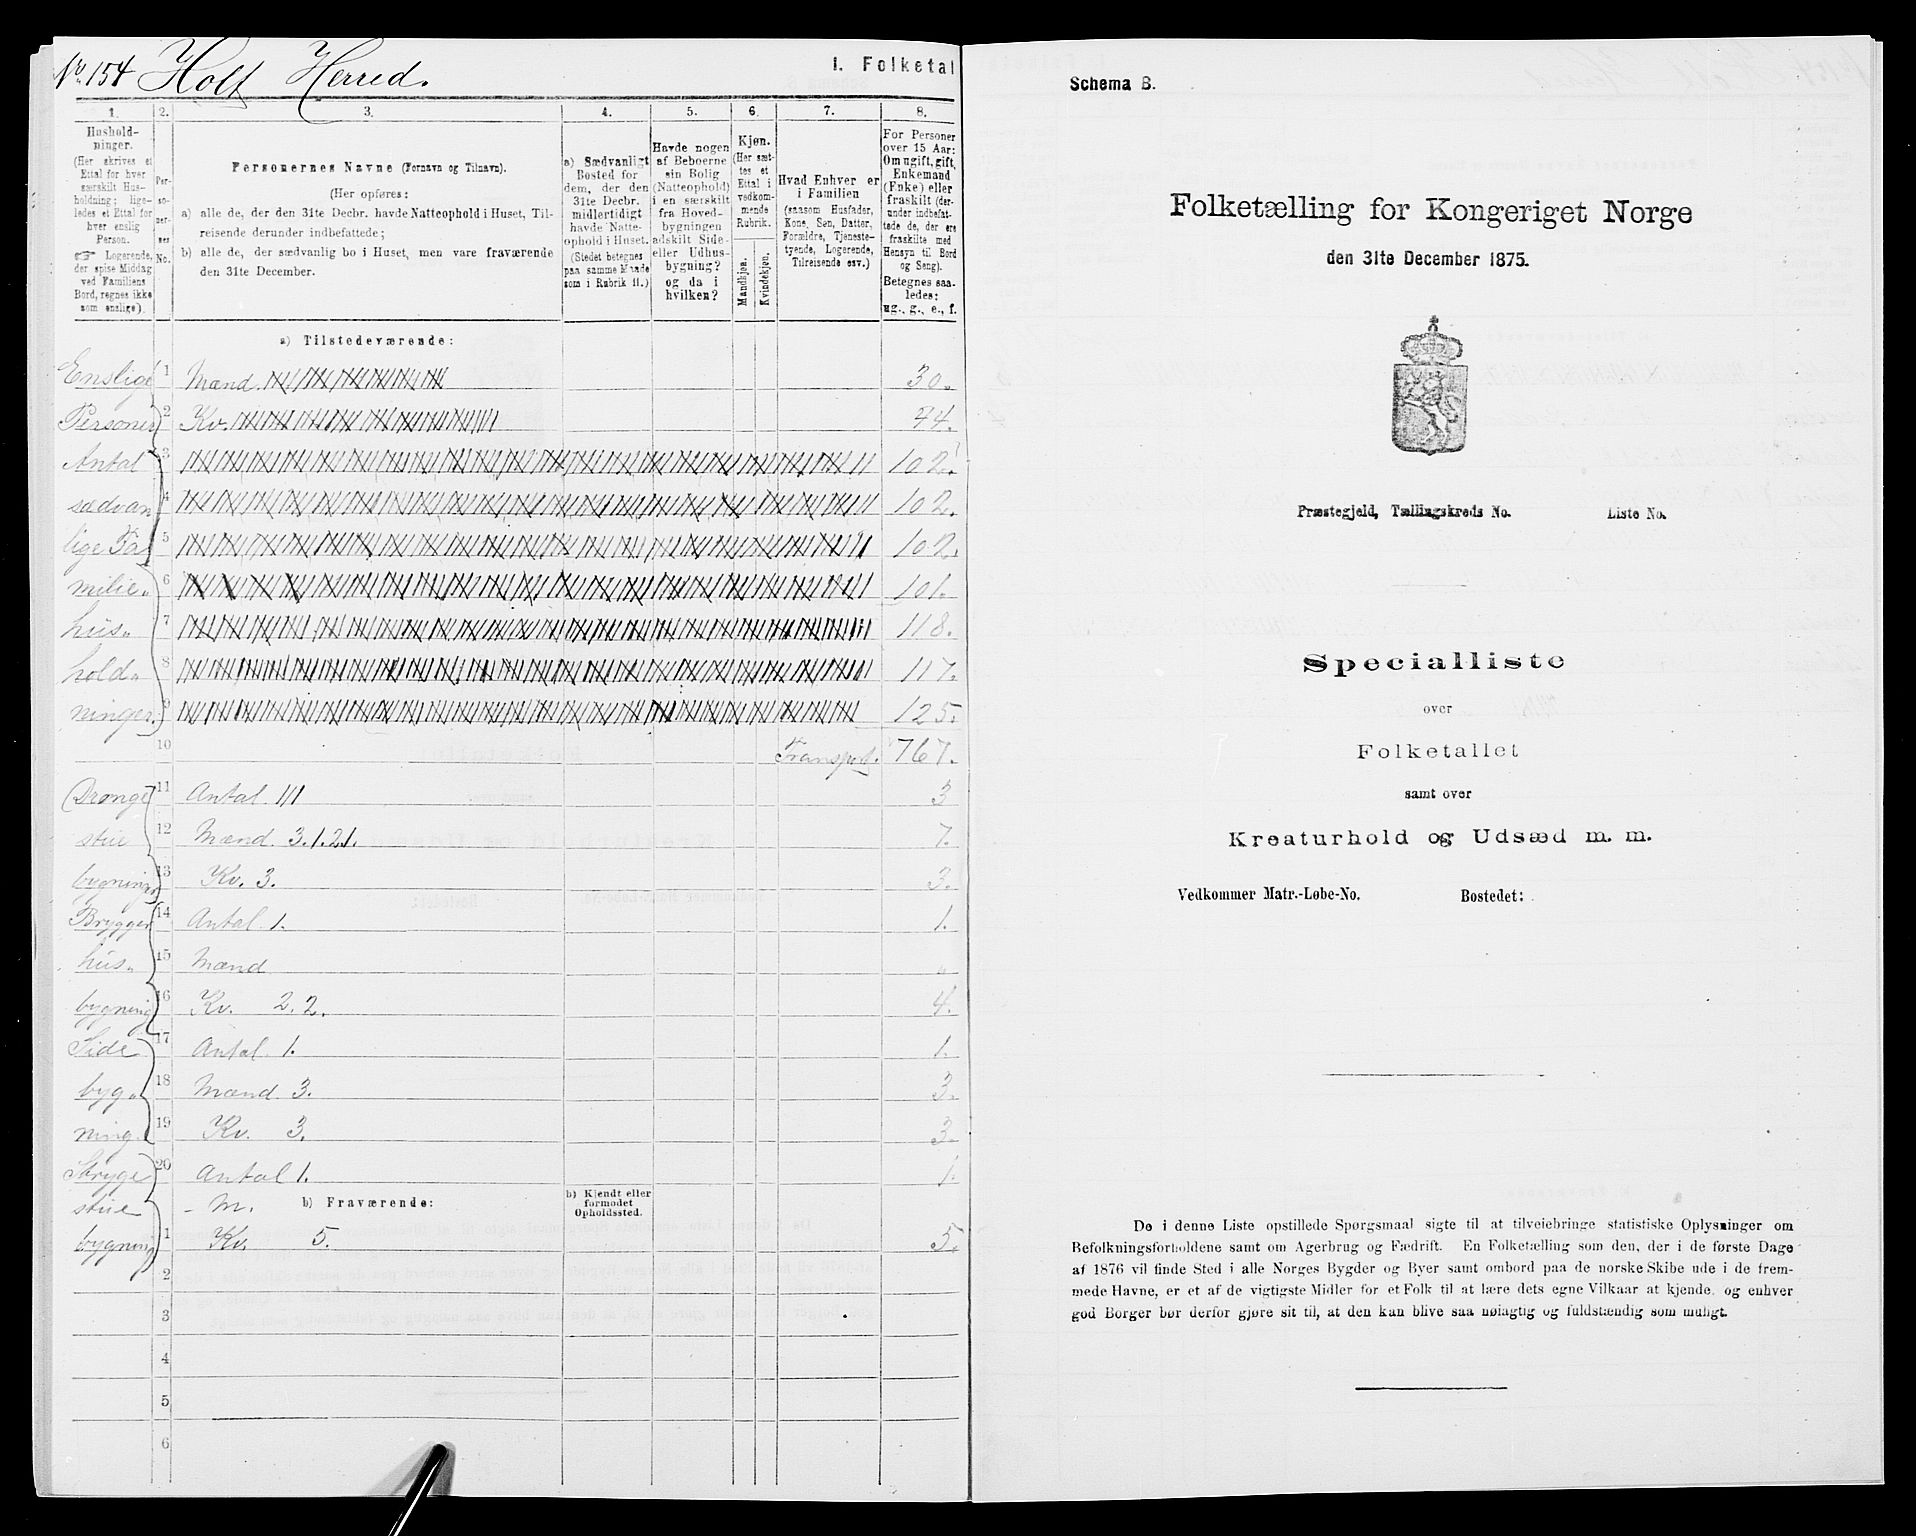 No. 154 Holt Herred.
1. Folketal
1.
2.
3.
4.
5.
6.
7.
8.
Hushold-
ninger.
(Her skrives et
Ettal for hver
særskilt Hus-
holdning; lige-
ledes et Ettal for
hver enslig
Person.
☞ Logerende,
der spise Middag
ved Familiens
Bord, regnes ikke
som enslige).
Per-
so-
ner-
nes
No.
Personernes Navne (Fornavn og Tilnavn).
(Her opføres:
a) alle de, der den 31te Decbr. havde Natteophold i Huset, Til-
reisende derunder indbefattede;
b) alle de, der sædvanlig bo i Huset, men vare fraværende
den 31te December.
a) Sædvanligt
Bosted for
dem, der den
31te Decbr.
midlertidigt
havde Natte-
ophold i Huset.
(Stedet betegnes
paa samme Maade
som i Rubrik 11.)
Havde nogen
af Beboerne
sin Bolig
(Natteophold)
i en særskilt
fra Hoved-
bygningen
adskilt Side-
eller Udhus-
bygning?
og da i
hvilken?
Kjøn.
(Her sæt-
tes et
Ettal i
vedkom-
mende
Rubrik.
Mandkjøn.
Kvindekjøn.
Hvad Enhver er
i Familien
(saasom Husfader,
Kone, Søn, Datter,
Forældre, Tjeneste-
tyende, Logerende,
Tilreisende osv.)
For Personer
over 15 Aar:
Om ugift, gift,
Enkemand
(Enke) eller
fraskilt (der-
under indbefat-
tede de, der ere
fraskilte med
Hensyn til Bord
og Seng).
Betegnes saa-
ledes:
ug., g., e., f.
a) Tilstedeværende:
Enslige 1 Mænd 30.
Personer 2 Kv. 74.
Antal 3 102.
sædvan 4 102.
lige Fa 5 102.
milie„ 6 101.
hus„ 7 118.
hold„ 8 117.
ninger. 9 125.
10 Transport. 767.
Drenge 11 Antal III 3
stue 12 Mænd 3.1.2.1. 7.
bygning 13 Kv. 3. 3.
Brygger 14 Antal 1. 1.
hus„ 15 Mænd „
bygning 16 Kv. 2.2. 4.
Side 17 Antal 1. 1.
byg„ 18 Mænd 3. 3.
ning. 19 Kv. 3. 3.
Stryge 20 Antal 1. 1.
stue - M. b) Fraværende:
b) Kjendt eller
formodet
Opholdssted.
bygning 1 Kv. 5. 5.
2
3
4
5
6
Schema B.
Folketælling for Kongeriget Norge
den 31te December 1875.
Præstegjeld, Tællingskreds No. Liste No.
Specialliste
over
Folketallet
samt over
Kreaturhold og Udsæd m. m.
Vedkommer Matr.-Løbe-No. Bostedet:
De i denne Liste opstillede Spørgsmaal sigte til at tilveiebringe statistiske Oplysninger om
Befolkningsforholdene samt om Agerbrug og Fædrift. En Folketælling som den, der i de første Dage
af 1876 vil finde Sted i alle Norges Bygder og Byer samt ombord paa de norske Skibe ude i de frem-
mede Havne, er et af de vigtigste Midler for et Folk til at lære dets egne Vilkaar at kjende, og enhver
god Borger bør derfor gjøre sit til, at den kan blive saa nøiagtig og fuldstændig som muligt.